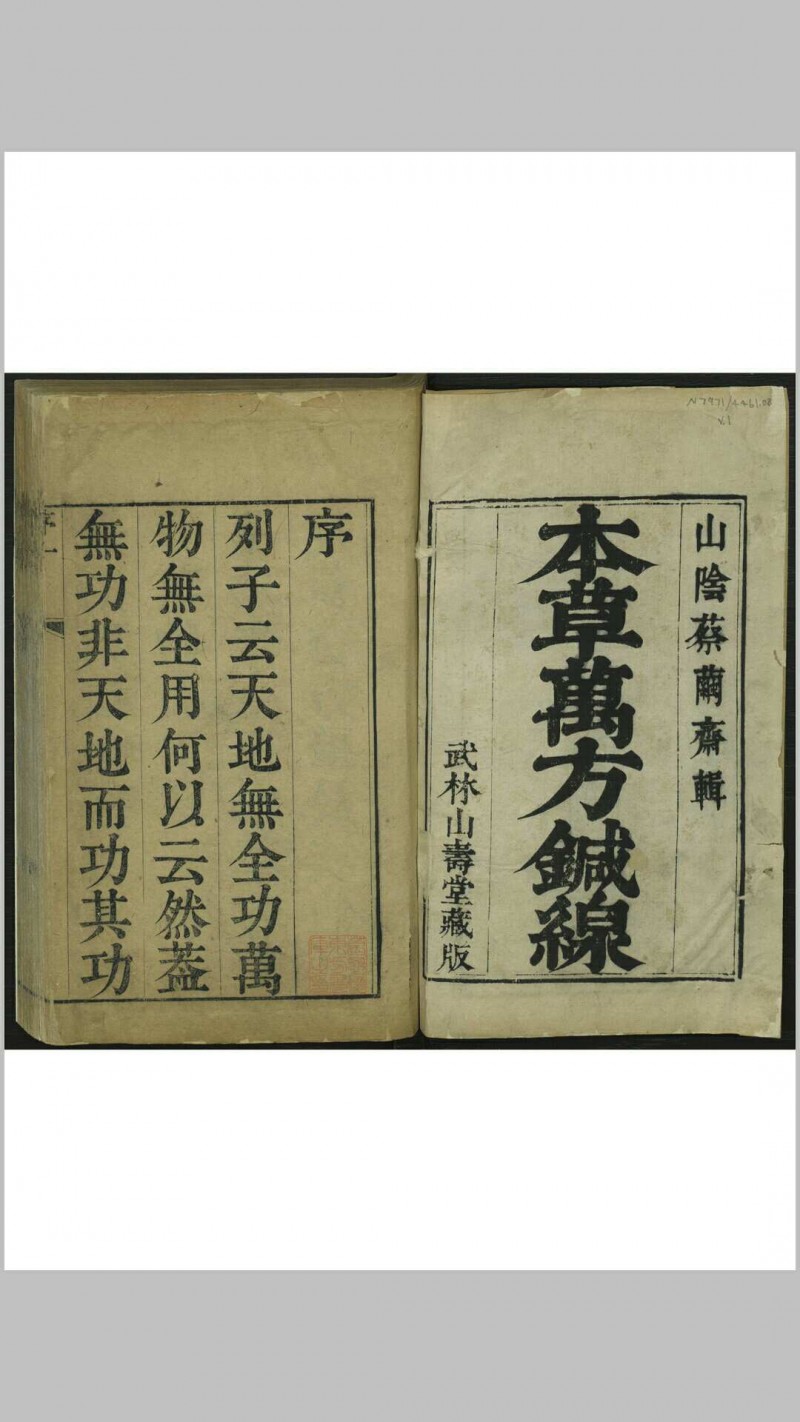 山陰蔡繭齋輯
本草萬方鍼線
武林山壽堂藏版
序
列子云天地無全功萬
物無全用何以云然葢
無功非天地而功其功
序一